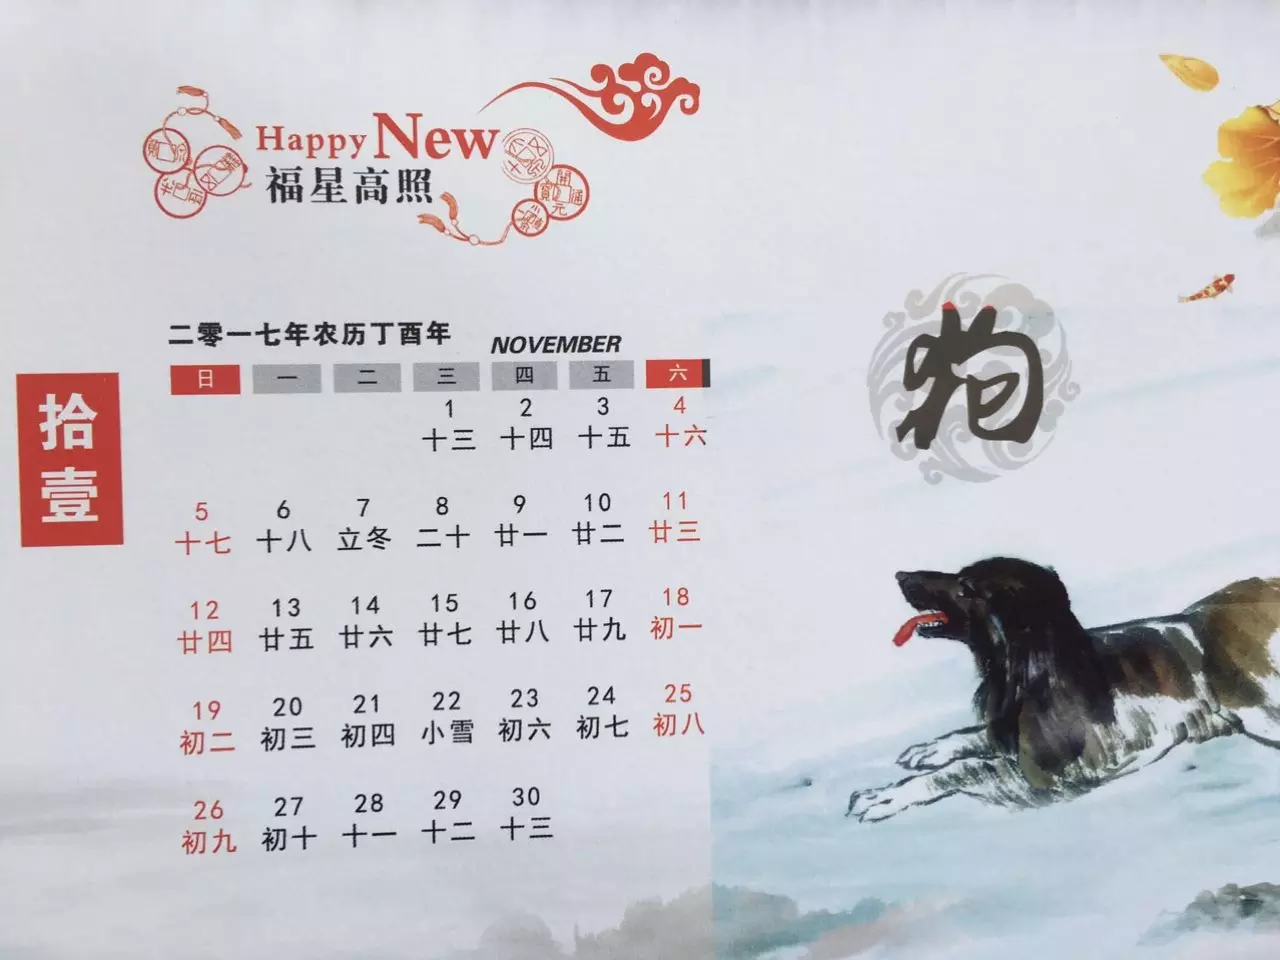 Happy New
福星高照
開元通寶
二零一七年农历丁酉年
NOVEMBER
拾壹
日 一 二 三 四 五 六
1 2 3 4
十三 十四 十五 十六
5 6 7 8 9 10 11
十七 十八 立冬 二十 廿一 廿二 廿三
12 13 14 15 16 17 18
廿四 廿五 廿六 廿七 廿八 廿九 初一
19 20 21 22 23 24 25
初二 初三 初四 小雪 初六 初七 初八
26 27 28 29 30
初九 初十 十一 十二 十三
狗